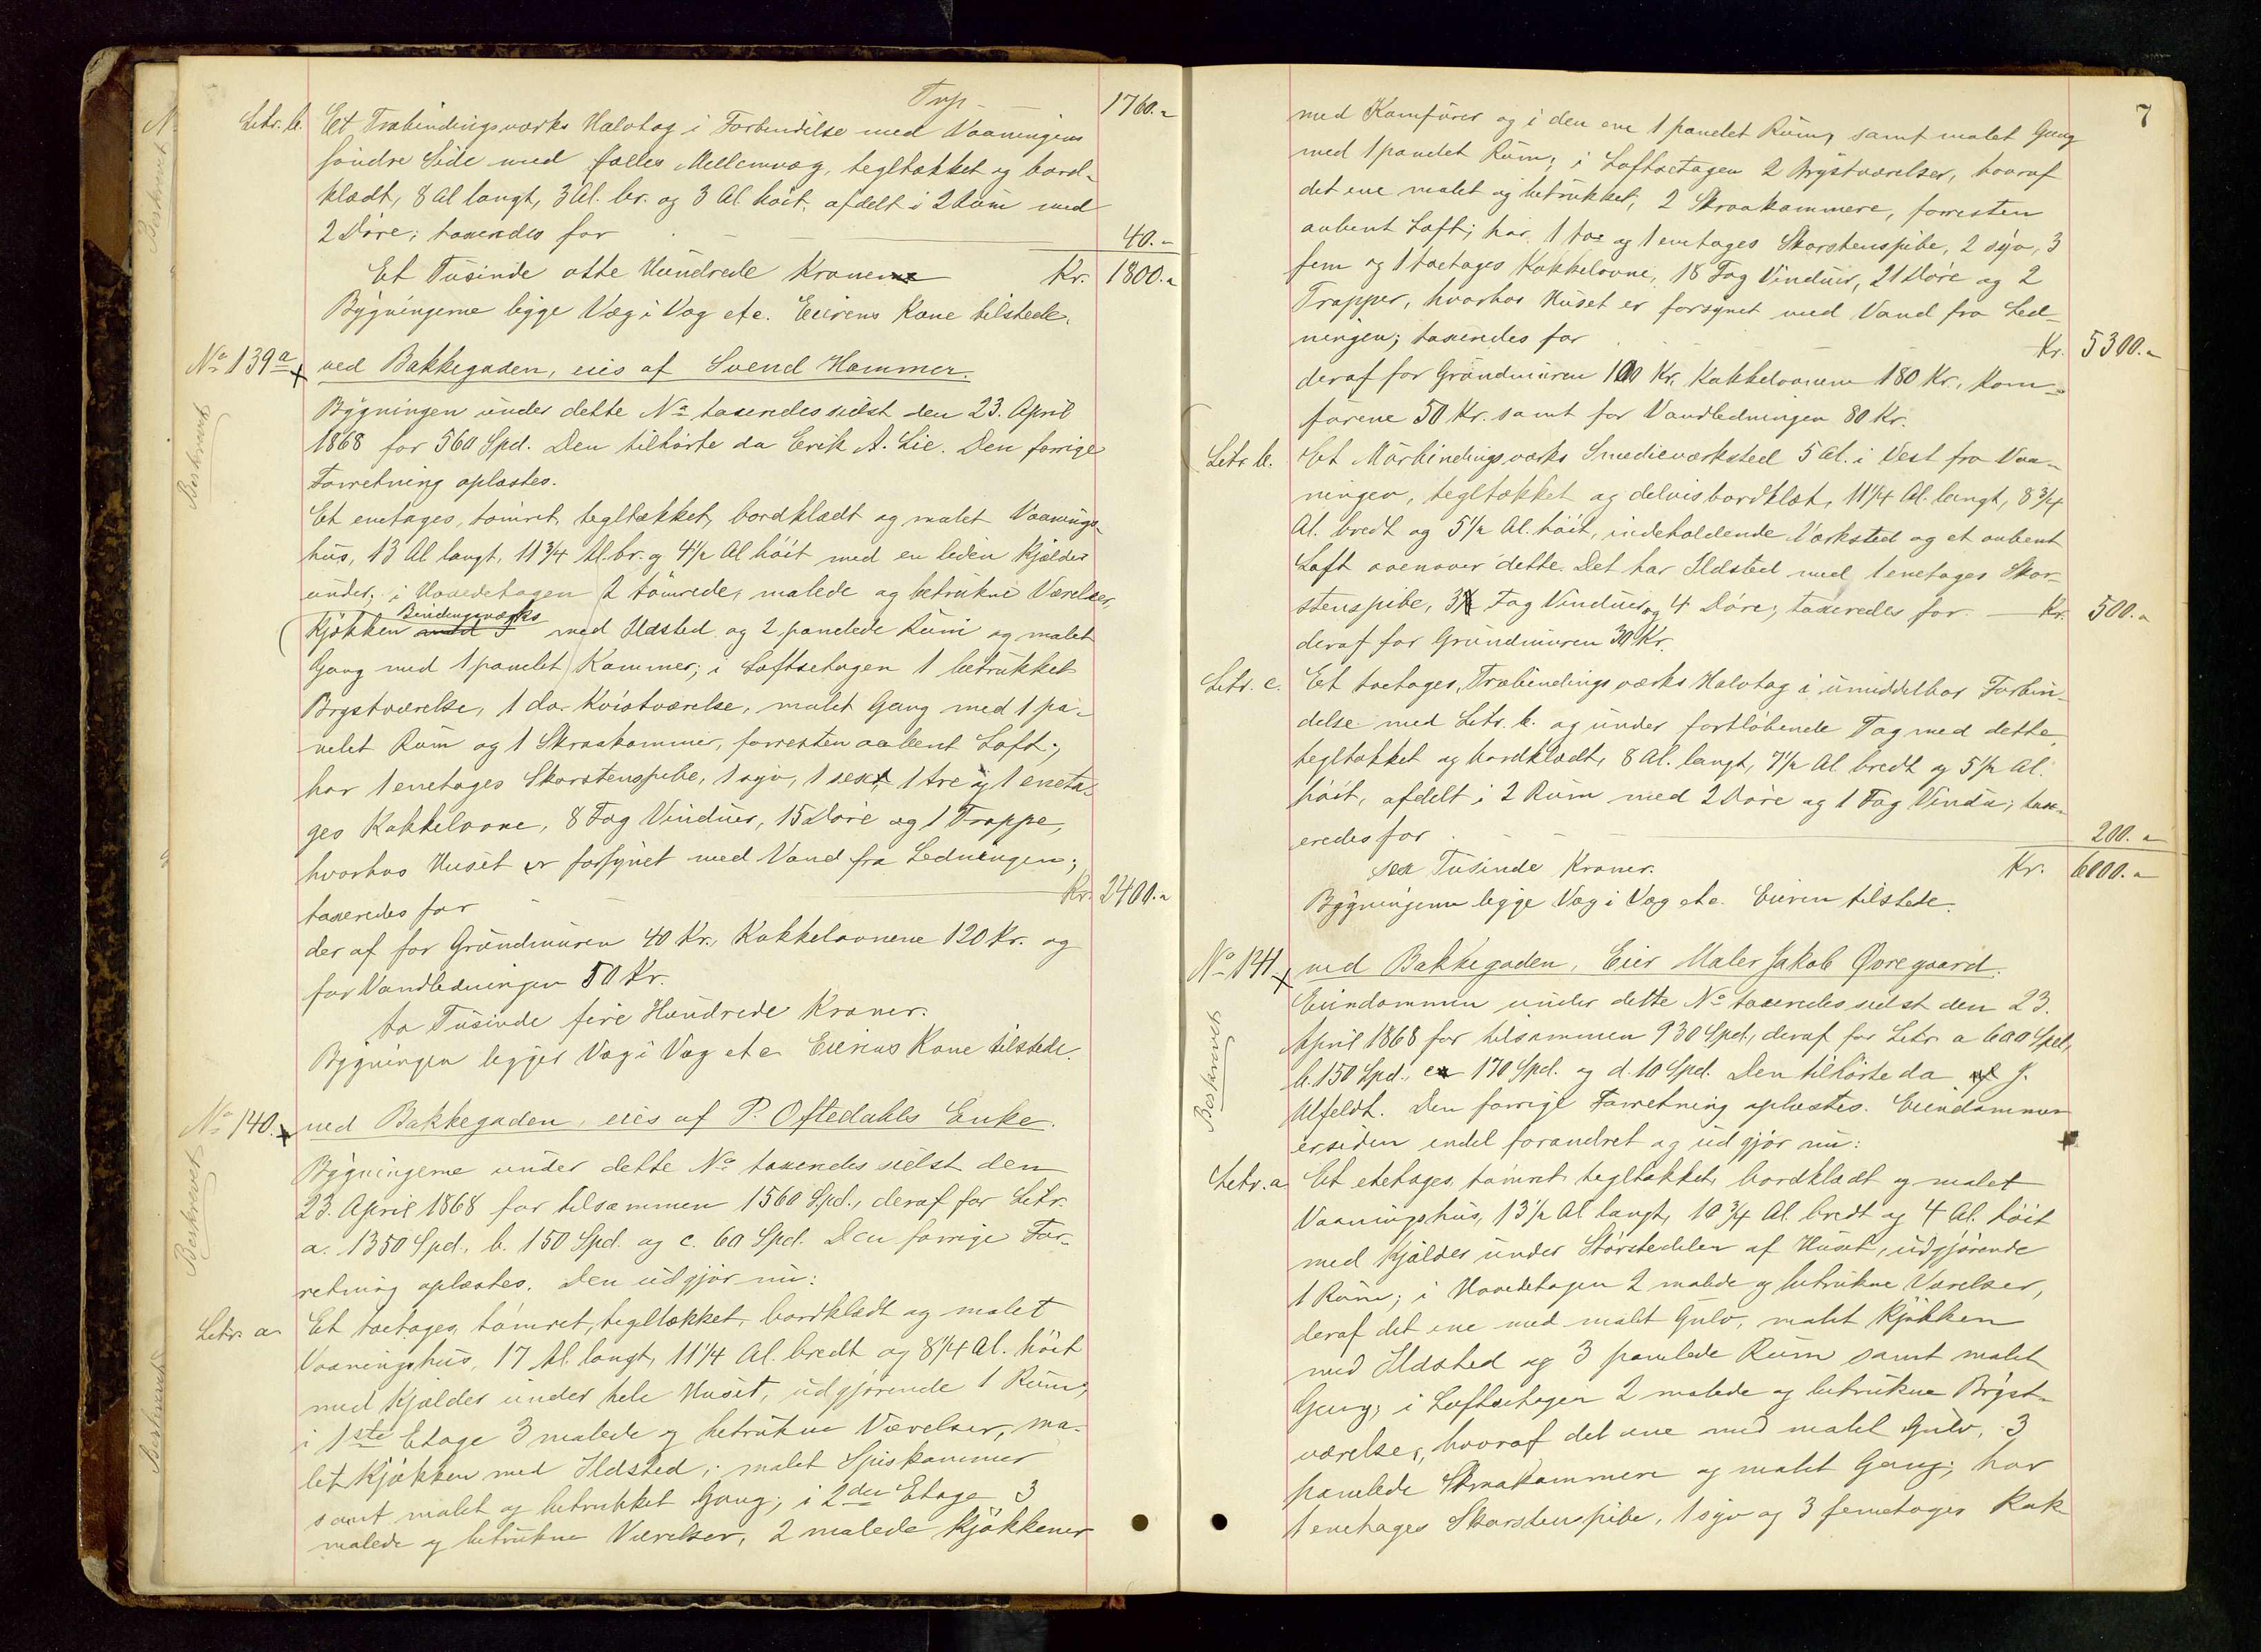 Trsp. 1760.-
Litr. b. Et Træbindingsværks Halvtag i Forbindelse med Vaaningens
søndre Side med fælles Mellemvæg, tegltækket og bord-
klædt, 8 Al langt, 3 Al. br. og 3 Al. høit, afdelt i 2 Rum med
2 Døre; taxeredes for 40.-
Et Tusinde otte Hundrede Kroner Kr. 1800.-
Bygningerne ligge Væg i Væg etc. Eierens Kone tilstede.
No 139a ved Bakkegaden, eies af Svend Hammer.
Beskrevet
Bygningen under dette No taxeredes sidst den 23. April
1868 for 560 Spd. Den tilhørte da Erik A. Lie. Den forrige
Forretning oplæstes.
Et enetages, tømret, tegltækket, bordklædt og malet Vaanings-
hus, 13 Al langt, 11 3/4 Al. br. og 4 1/2 Al høit med en liden Kjælder
under; i Hovedetagen 2 tømrede, malede og betrukne Værelser,
Bindingsværks
Kjøkken med Ildsted og 2 panelede Rum og malet
Gang med 1 panelet Kammer; i Loftsetagen 1 betrukket
Brystværelse, 1 do. Kvistværelse, malet Gang med 1 pa-
nelet Rum og 1 Skraakammer, forresten aabent Loft;
har 1 enetages Skorstenspibe, 1 syv, 1 sex, 1 tre og 1 eneta-
ges Kakkelovne, 8 Fag Vinduer, 15 Døre og 1 Trappe,
hvorhos Huset er forsynet med Vand fra Ledningen;
taxeredes for Kr. 2400.-
deraf for Grundmuren 40 Kr., Kakkelovnene 120 Kr. og
for Vandledningen 50 Kr.
to Tusinde fire Hundrede Kroner.
Bygningen ligger Væg i Væg etc. Eierens Kone tilstede.
No 140. ved Bakkegaden, eies af P. Oftedahls Enke.
Beskrevet
Bygningerne under dette No taxeredes sidst den
23. April 1868 for tilsammen 1560 Spd., deraf for Litr.
a. 1350 Spd., b. 150 Spd. og c. 60 Spd. Den forrige For-
retning oplæstes. Den udgjør nu:
Litr. a. Et toetages, tømret, tegltækket, bordklædt og malet
Vaaningshus, 17 Al. langt, 11 1/4 Al. bredt og 8 1/4 Al. høit
med Kjælder under hele Huset, udgjørende 1 Rum;
i 1ste Etage 3 malede og betrukne Værelser, ma-
let Kjøkken med Ildsted; malet Spiskammer
samt malet og betrukket Gang; i 2den Etage 3
malede og betrukne Værelser, 2 malede Kjøkkener
7
med Komfurer og i den ene 1 panelet Rum, samt malet Gang
med 1 panelet Rum; i Loftsetagen 2 Brystværelser, hvoraf
det ene malet og betrukket; 2 Skraakammere, forresten
aabent Loft; har 1 to- og 1 enetages Skorstenspibe, 2 syv, 3
fem og 1 toetages Kakkelovne, 18 Fag Vinduer, 21 Døre og 2
Trapper, hvorhos Huset er forsynet med Vand fra Led-
ningen; taxeredes for Kr. 5300.-
deraf for Grundmuren 100 Kr., Kakkelovnene 180 Kr., Kom-
furene 50 Kr. samt for Vandledningen 80 Kr.
Litr. b. Et Murbindingsværks Smedieværksted 5 Al. i Vest fra Vaa-
ningen, tegltækket og delvis bordklæt, 11 1/4 Al. langt, 8 3/4
Al. bredt og 5 1/2 Al. høit, indeholdende Værksted og et aabent
Loft ovenover dette. Det har Ildsted med 1 enetages Skor-
stenspibe, 3 Fag Vinduer og 4 Døre; taxeredes for Kr. 500.-
deraf for Grundmuren 30 Kr.
Litr. c. Et toetages, Træbindingsværks Halvtag i umiddelbar Forbin-
delse med Litr. b. og under fortløbende Tag med dette,
tegltækket og bordklædt, 8 Al. langt, 7 1/2 Al. bredt og 5 1/2 Al.
høit, afdelt i 2 Rum med 2 Døre og 1 Fag Vindu; tax-
eredes for 200.-
sex Tusinde Kroner. Kr. 6000.-
Bygningerne ligge Væg i Væg etc. Eieren tilstede.
No 141 ved Bakkegaden, Eier Maler Jakob Øvregaard.
Beskrevet
Eiendommen under dette No taxeredes sidst den 23.
April 1868 for tilsammen 930 Spd., deraf for Litr. a 600 Spd.,
b. 150 Spd., c 170 Spd. og d. 10 Spd. Den tilhørte da J.
Ulfeldt. Den forrige Forretning oplæstes. Eiendommen
er siden endel forandret og udgjør nu:
Litr. a. Et etetages, tømret, tegltækket, bordklædt og malet
Vaaningshus, 13 1/2 Al langt, 10 3/4 Al. bredt og 4 Al. høit
med Kjælder under Størstedelen af Huset, udgjørende
1 Rum; i Hovedetagen 2 malede og betrukne Værelser,
deraf det ene med malet Gulv, malet Kjøkken
med Ildsted og 3 panelede Rum samt malet
Gang; i Loftsetagen 2 malede og betrukne Bryst-
værelser, hvoraf det ene med malet Gulv, 3
panelede Skraakammere og malet Gang; har
1 enetages Skorstenspibe, 1 syv og 3 femetages Kak-